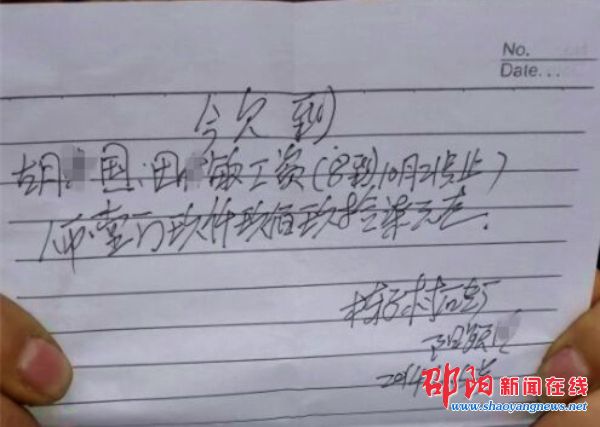 No.
Date...
今欠到
胡 国、田 敏工资(8到10月21号止)
壹万玖仟玖佰玖拾柒元整.
2014
邵阳新闻在线
www.shaoyangnews.net